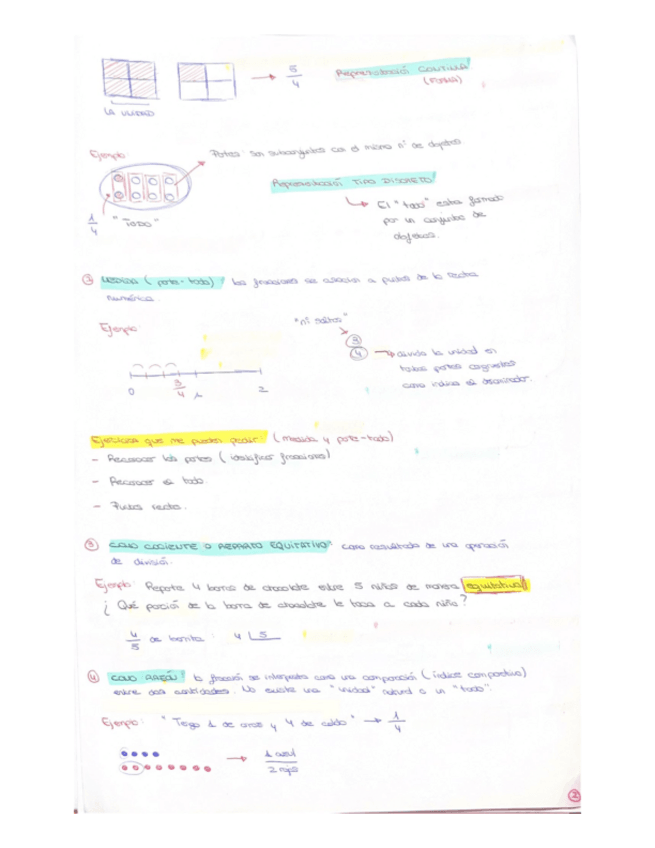 → 5/4
Representación CONTINUA
(FORMA)
LA UNIDAD
Ejemplo:
Partes: Son subconjuntos con el mismo nº de objetos
Representación TIPO DISCRETO
1/4 "TODO"
↳ El "todo" estará formado
por un conjunto de
objetos.
② MEDIDA (parte-todo) las fracciones se asocian a puntos de la recta
numérica.
Ejemplo
"nº saltos"
3
4 → divido la unidad en
tantas partes congruentes
como indica el denominador.
0 3/4 1 2
Ejercicios que me pueden pedir: (medida y parte-todo)
- Reconocer las partes (identificar fracciones)
- Reconocer el todo.
- Puntos recta.
③ COMO COCIENTE O REPARTO EQUITATIVO: como resultado de una operación
de división.
Ejemplo: Reparte 4 barras de chocolate entre 5 niños de manera equitativa
¿Qué porción de la barra de chocolate le toca a cada niño?
4/5 de barrita: 4 | 5
④ COMO RAZÓN: la fracción se interpreta como una comparación (índice comparativo)
entre dos cantidades. No existe una "unidad" natural o un "todo".
Ejemplo: "Tengo 1 de arroz y 4 de caldo" → 1/4
→ 1 azul
2 rojos
②